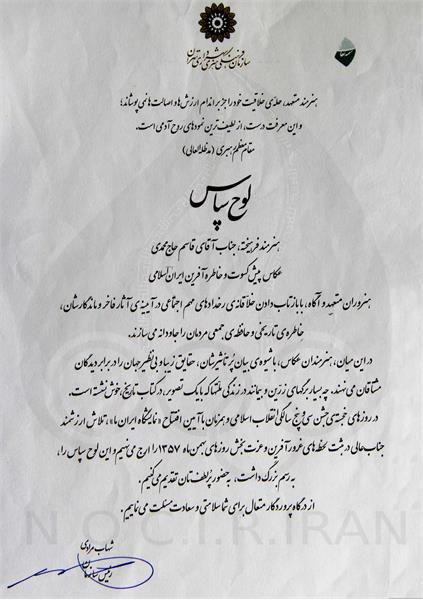 سازمان فرهنگی هنری شهرداری تهران
هنرمند متعهد، حله‌ی خلاقیت خود را جز بر اندام ارزش‌ها و اصالت‌ها نمی‌پوشاند؛
و این معرفت درست، از لطیف‌ترین نمودهای روح آدمی است.
مقام معظم رهبری (مدظله‌العالی)
لوح سپاس
هنرمند فرهیخته، جناب آقای قاسم حاج محمدی
عکاس پیش‌کسوت و خاطره‌آفرین ایران اسلامی
هنروران متعهد و آگاه، با بازتاب دادن خلاقانه‌ی رخدادهای مهم اجتماعی در آیینه‌ی آثار فاخر و ماندگارشان،
خاطره‌ی تاریخی و حافظه‌ی جمعی مردمان را جاودانه می‌سازند.
در این میان، هنرمندان عکاس، با شیوه‌ی بیان پرتأثیرشان، حقایق زیبا و بی‌نظیر جهان را در برابر دیدگان
مشتاقان می‌نهند. چه بسیار برگهای زرین و بیمانند در زندگی ملتها که با یک تصویر، در کتاب تاریخ، خوش نشسته است.
در روزهای خجسته‌ی جشن سی و پنج سالگی انقلاب اسلامی و همزمان با آیین افتتاح «نمایشگاه ایران ما»، تلاش ارزشمند
جنابعالی در ثبت لحظه‌های غرورآفرین و عزت‌بخش روزهای بهمن‌ماه ۱۳۵۷ را ارج می‌نهیم و این لوح سپاس را،
به رسم بزرگداشت، به حضور پرلطف‌تان تقدیم می‌کنیم.
از درگاه پروردگار متعال برای شما سلامتی و سعادت مسئلت می‌نماییم.
N.O.C.I.R.IRAN
شهاب مرادی
رئیس سازمان